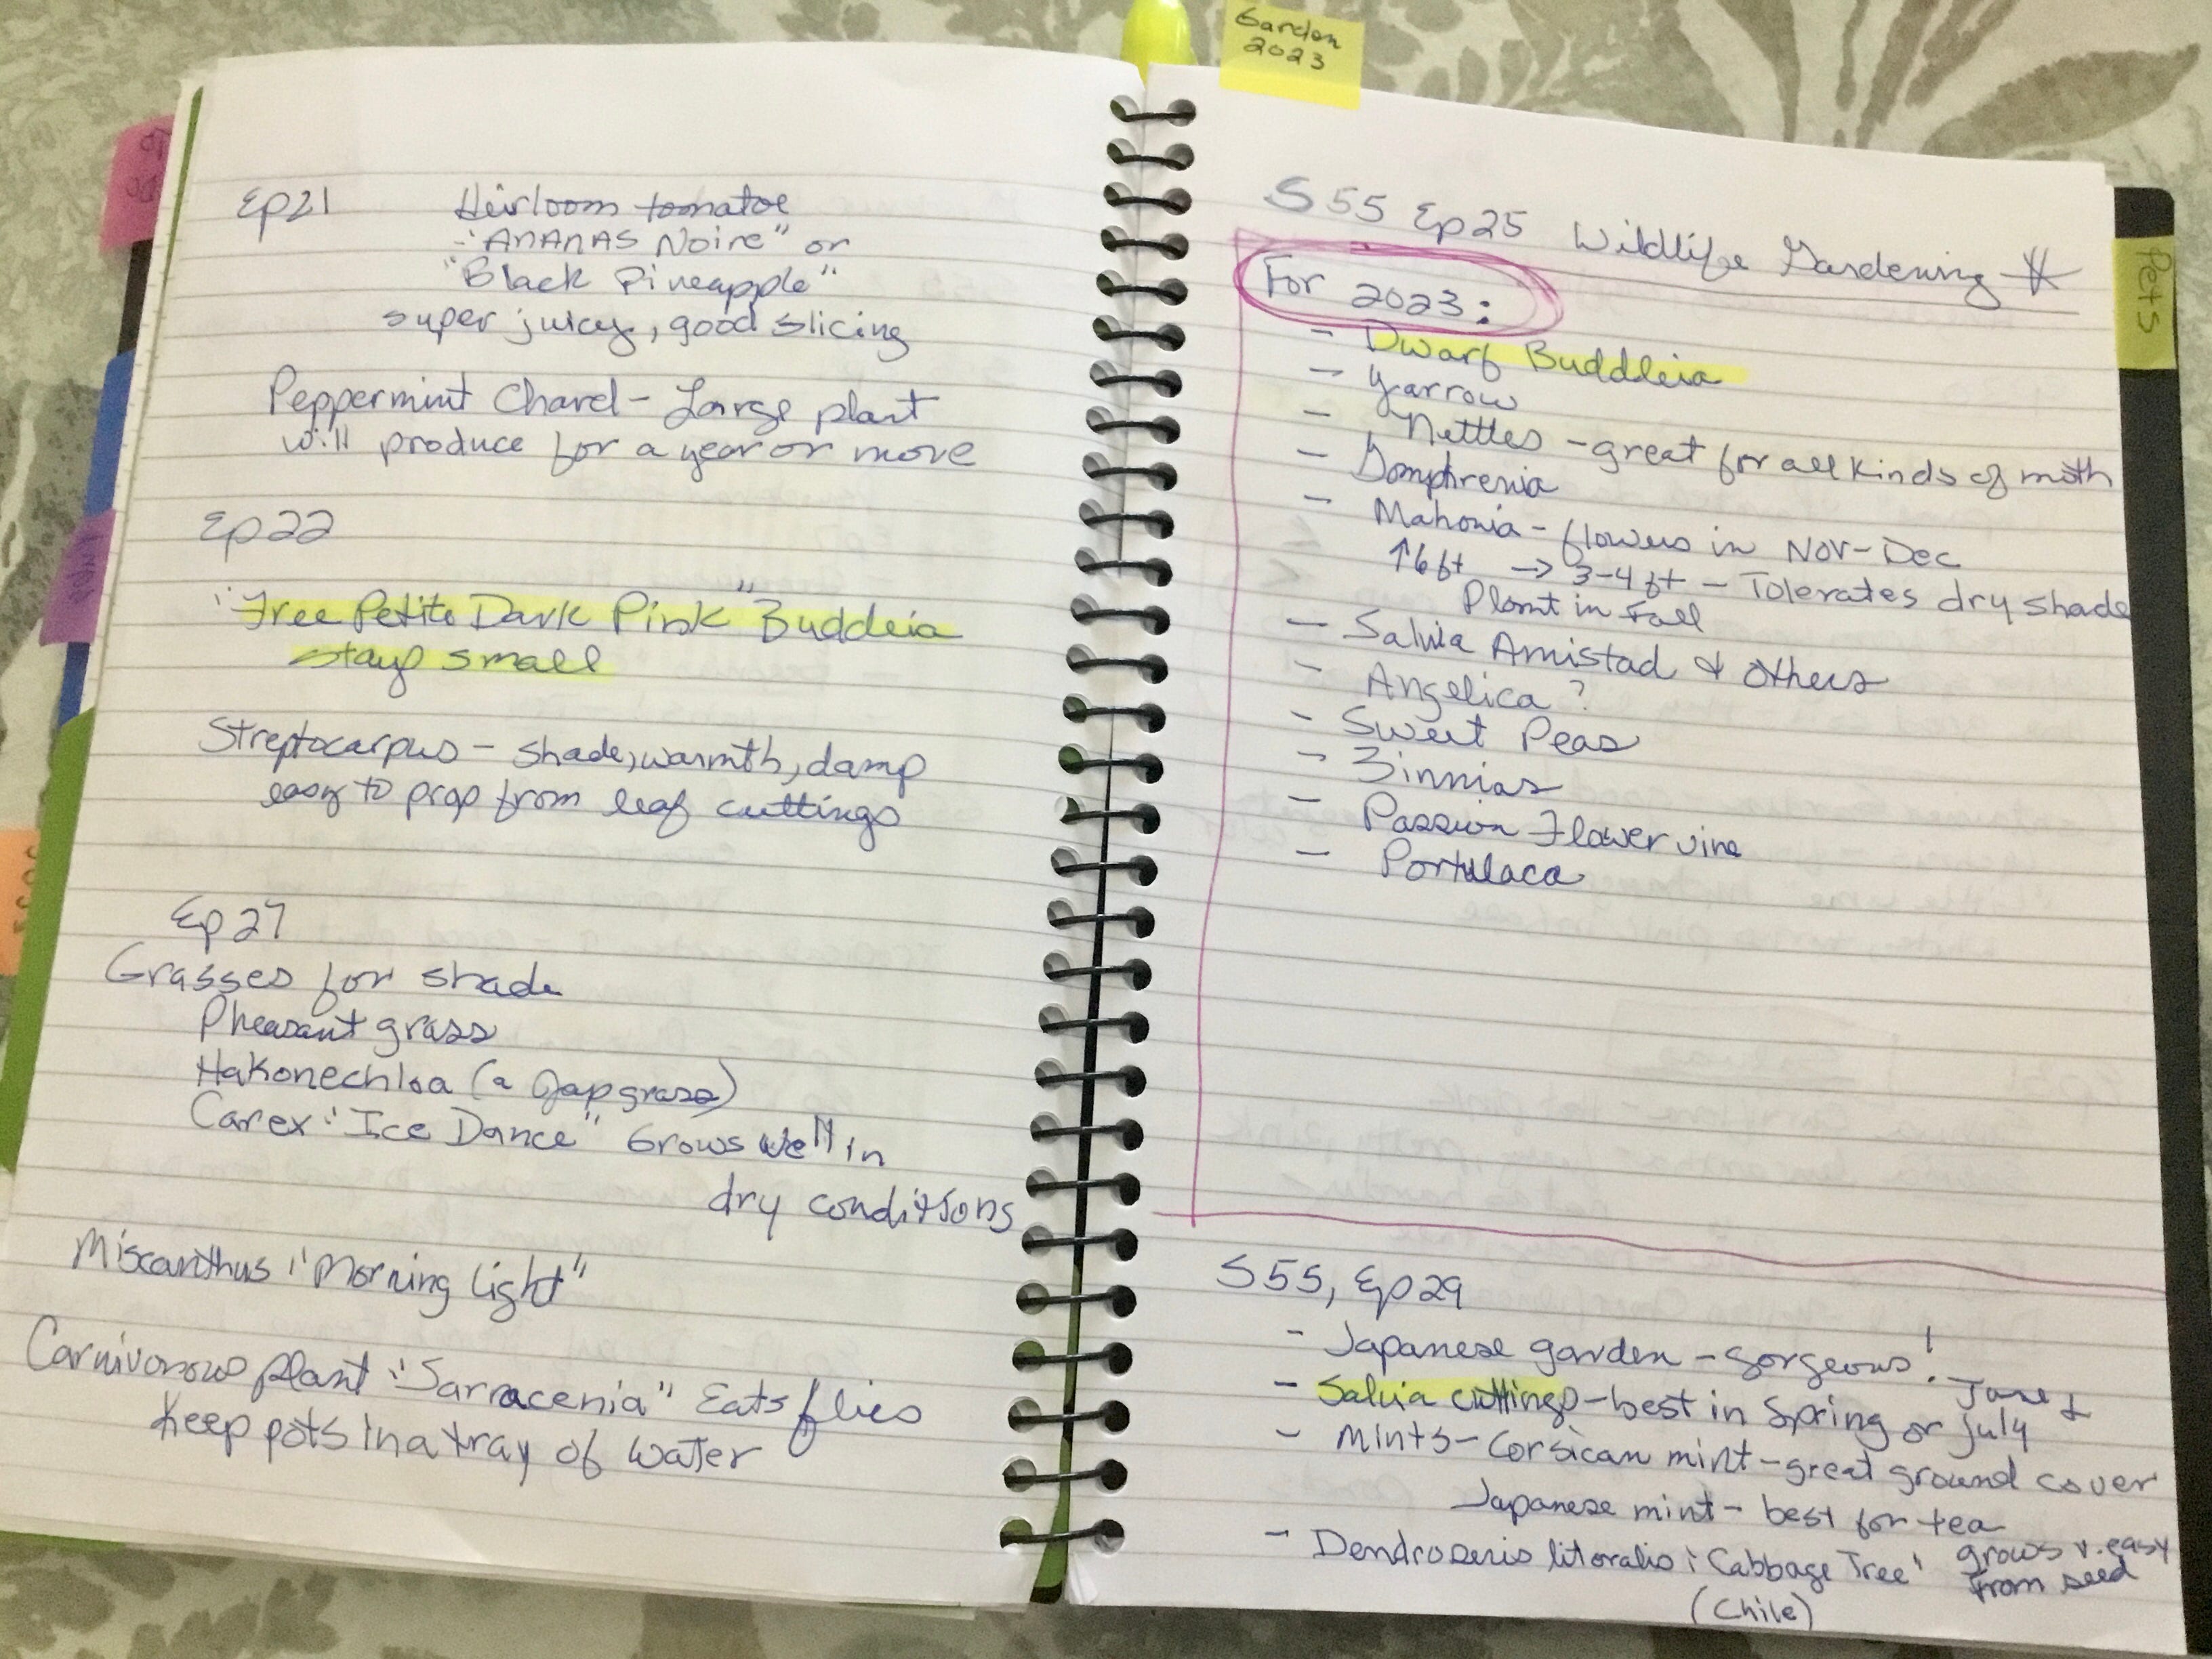 Garden
2023
Pets
Ep21
Heirloom tomatoe
-"ANANAS Noire" or
"Black Pineapple"
super juicy, good slicing
Peppermint Chard - Large plant
will produce for a year or more
Ep22
"Free Petite Dark Pink" Buddeia
stays small
Streptocarpus - shade, warmth, damp
easy to prop from leaf cuttings
Ep27
Grasses for shade
Pheasant grass
Hakonechloa (a Jap grass)
Carex "Ice Dance" Grows well in
dry conditions
Miscanthus "Morning Light"
Carnivorous plant "Sarracenia" Eats flies
Keep pots in a tray of water
S55 Ep25 Wildlife Gardening
For 2023:
- Dwarf Buddleia
- Yarrow
- Nettles - great for all kinds of moth
- Gomphrenia
- Mahonia - flowers in Nov-Dec
↑6ft → 3-4 ft - Tolerates dry shade
Plant in Fall
- Salvia Amistad & others
- Angelica ?
- Sweet Peas
- Zinnias
- Passion Flower vine
- Portulaca
S55, Ep29
- Japanese garden - gorgeous!
- Salvia cuttings - best in Spring or June & July
- Mints - Corsican mint - great ground cover
Japanese mint - best for tea
- Dendroseris litoralis 'Cabbage Tree' grows v. easy
from seed
(Chile)